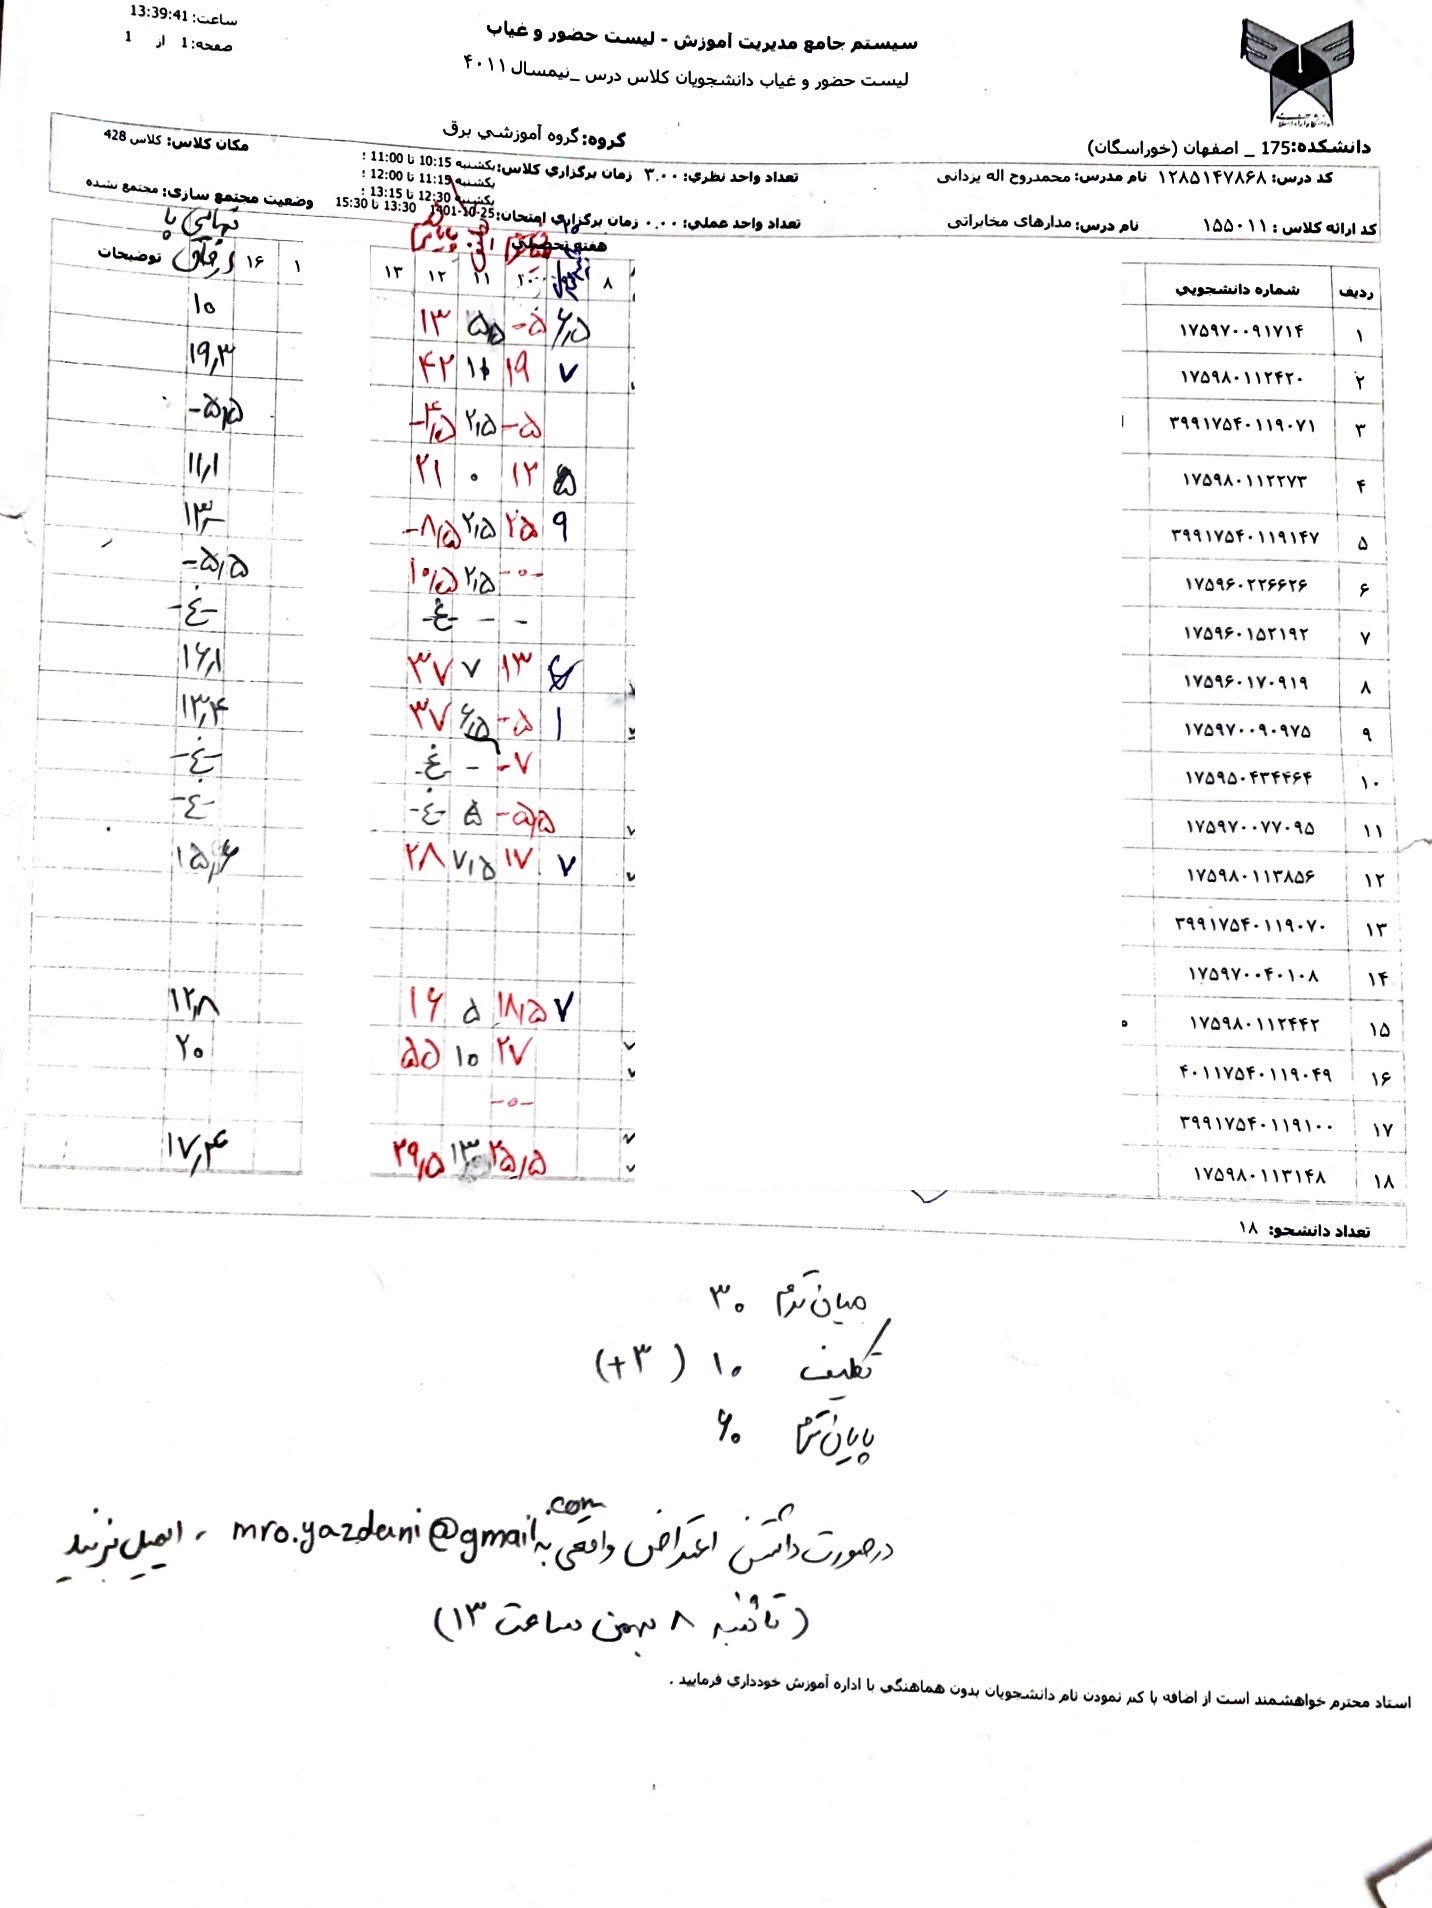 ساعت: 13:39:41
صفحه: 1 از 1
سیستم جامع مدیریت آموزش - لیست حضور و غیاب
لیست حضور و غیاب دانشجویان کلاس درس _نیمسال ۴۰۱۱
دانشکده: 175 _ اصفهان (خوراسگان) گروه: گروه آموزشي برق
کد درس: ۱۲۸۵۱۴۷۸۶۸ نام مدرس: محمدروح اله یزدانی تعداد واحد نظري: ۳.۰۰ زمان برگزاري کلاس: یکشنبه 10:15 تا 11:00 ؛ مکان کلاس: کلاس 428
یکشنبه 11:15 تا 12:00 ؛
یکشنبه 12:30 تا 13:15 ؛
کد ارائه کلاس : ۱۵۵۰۱۱ نام درس: مدارهای مخابراتی تعداد واحد عملي: ۰.۰۰ زمان برگزاري امتحان: 25-10-1401 13:30 تا 15:30 وضعیت مجتمع سازی: مجتمع نشده
هفته تحصیلي
نهایی با ارفاق
ردیف شماره دانشجویي ۸ ۱۰ ۱۱ ۱۲ ۱۳ ۱ ۱۶ توضیحات
۱ ۱۷۵۹۷۰۰۹۱۷۱۴ ۶٫۵ -۵ ۵٫۵ ۱۳ ۱۰
۲ ۱۷۵۹۸۰۱۱۲۴۲۰ ۷ ۱۹ ۱۱ ۴۲ ۱۹٫۳
۳ ۳۹۹۱۷۵۴۰۱۱۹۰۷۱ -۵ ۲٫۵ -۴٫۵ -۵٫۵
۴ ۱۷۵۹۸۰۱۱۲۲۷۳ ۵ ۱۲ ۰ ۲۱ ۱۱٫۱
۵ ۳۹۹۱۷۵۴۰۱۱۹۱۴۷ ۹ ۲۵ ۲٫۵ -۸٫۵ ۱۳٫-
۶ ۱۷۵۹۶۰۲۲۶۶۲۶ -۰- ۲٫۵ ۱۰٫۵ -۵٫۵
۷ ۱۷۵۹۶۰۱۵۲۱۹۲ - - -غ- -غ-
۸ ۱۷۵۹۶۰۱۷۰۹۱۹ ۱۳ ۷ ۳۷ ۱۶٫۱
۹ ۱۷۵۹۷۰۰۹۰۹۷۵ ۱ -۵ ۶٫۵ ۳۷ ۱۳٫۴
۱۰ ۱۷۵۹۵۰۴۳۴۴۶۴ -۷ - -غ- -غ-
۱۱ ۱۷۵۹۷۰۰۷۷۰۹۵ -۵٫۵ ۵ -غ- -غ-
۱۲ ۱۷۵۹۸۰۱۱۳۸۵۶ ۷ ۱۷ ۷٫۵ ۲۸ ۱۵٫۶
۱۳ ۳۹۹۱۷۵۴۰۱۱۹۰۷۰
۱۴ ۱۷۵۹۷۰۰۴۰۱۰۸
۱۵ ۱۷۵۹۸۰۱۱۲۴۴۲ ۷ ۱۸٫۵ ۵ ۱۶ ۱۲٫۸
۱۶ ۴۰۱۱۷۵۴۰۱۱۹۰۴۹ ۲۷ ۱۰ ۵۵ ۲۰
۱۷ ۳۹۹۱۷۵۴۰۱۱۹۱۰۰ -۰-
۱۸ ۱۷۵۹۸۰۱۱۳۱۴۸ ۲۵٫۵ ۱۳ ۲۹٫۵ ۱۷٫۴
تعداد دانشجو: ۱۸
میان ترم ۳۰
تکلیف ۱۰ (۳+)
پایان ترم ۶۰
درصورت داشتن اعتراض واقعی به mro.yazdani@gmail.com ، ایمیل بزنید
(تا شنبه ۸ بهمن ساعت ۱۳)
استاد محترم خواهشمند است از اضافه یا کم نمودن نام دانشجویان بدون هماهنگي با اداره آموزش خودداري فرمایید .